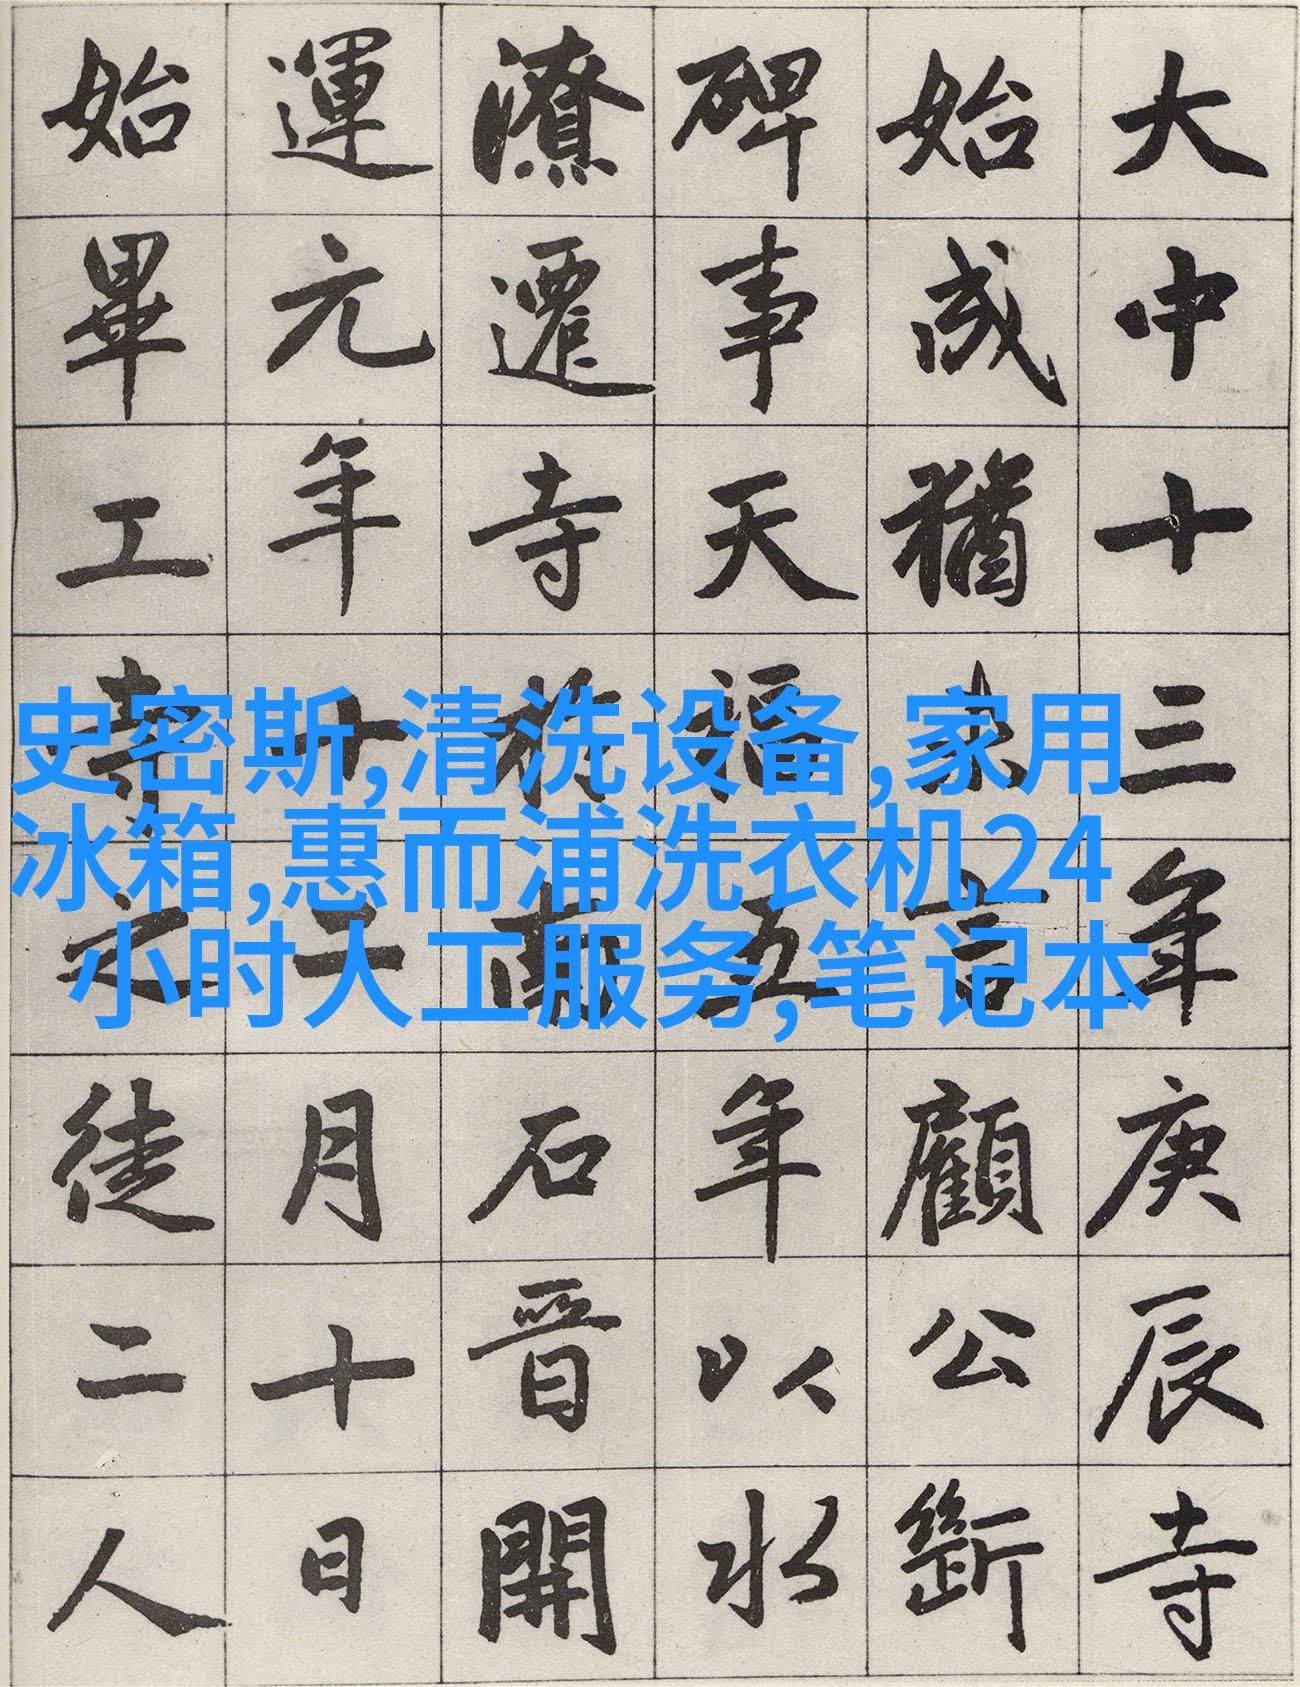 大中十三年庚辰寺
始成猶未言顧公斷
碑事天福五年以水
潦遷寺於高石晉開
運元年十二月十日
始畢工寺之徒二人
史密斯,清洗设备,家用
冰箱,惠而浦洗衣机24
小时人工服务,笔记本